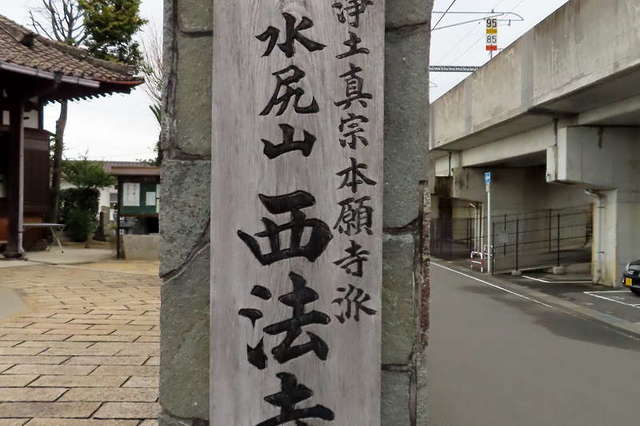 浄土真宗本願寺派
水尻山
西法寺
95
85